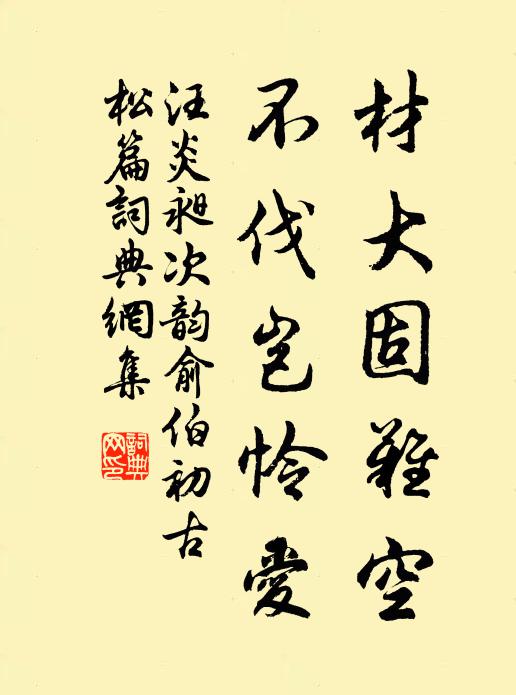 材大固難空
不伐岂怜愛
汪炎昶次韵俞伯初古
松篇詞典網集
詞典
网印